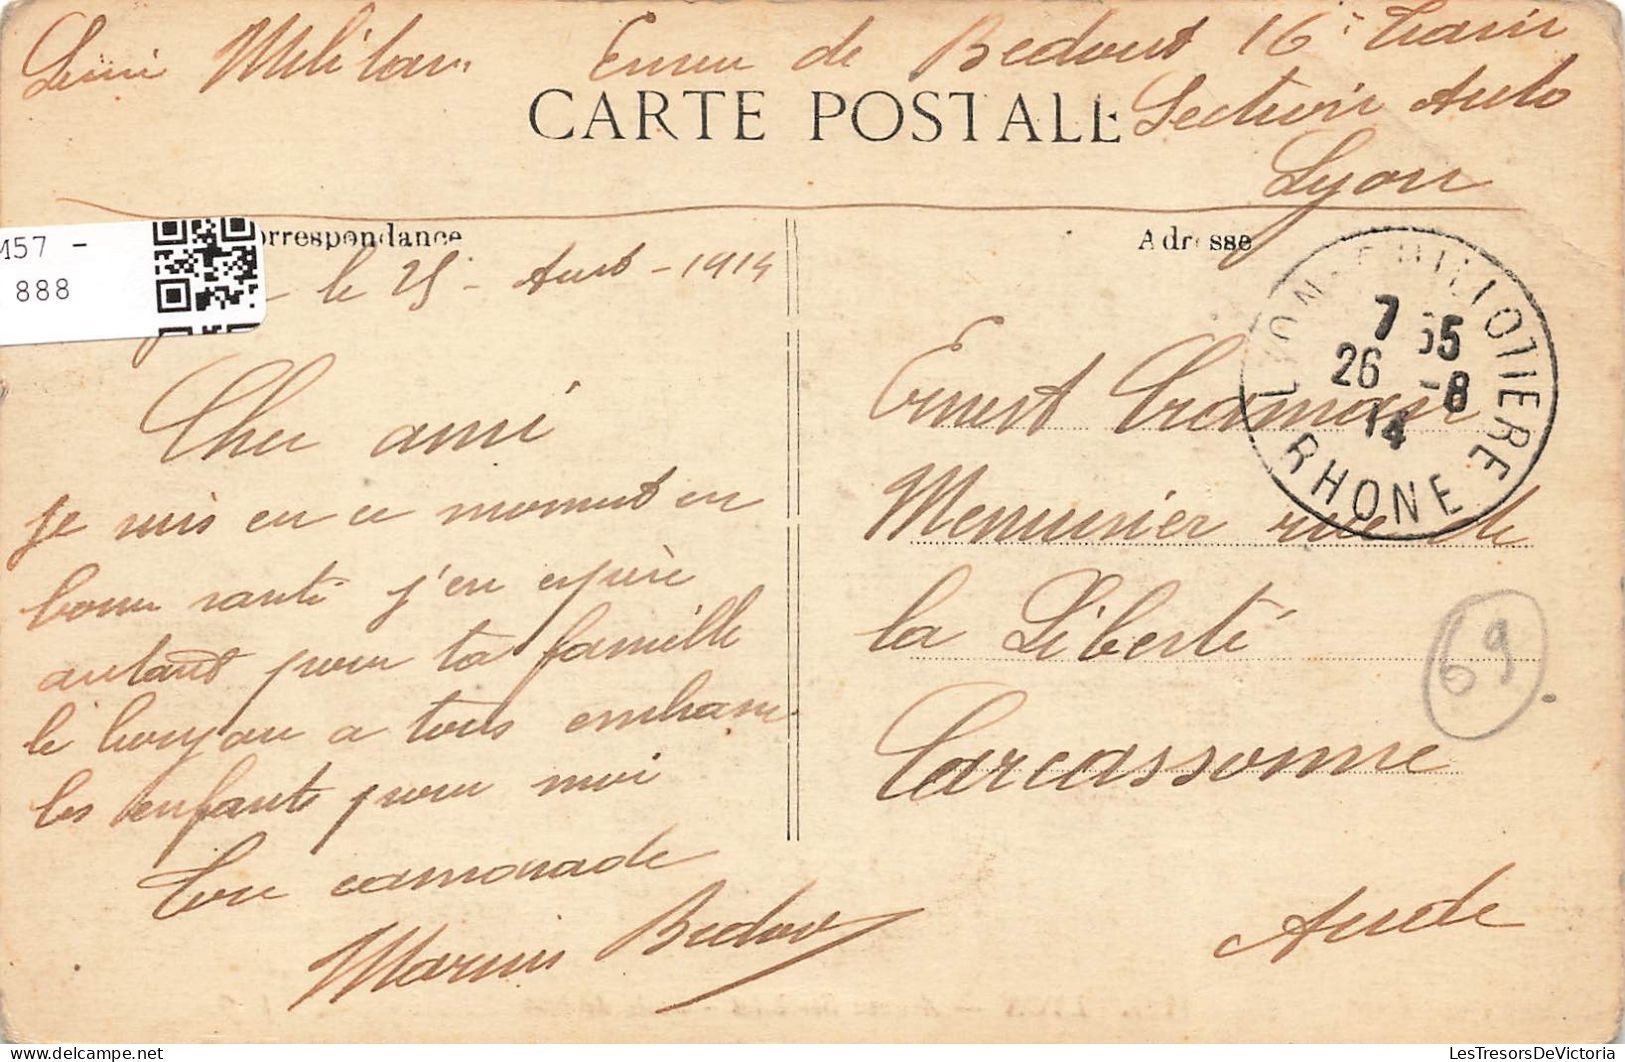 Militar Envoi de Bedout 16e Train
CARTE POSTALE Section Auto
Lyon
orrespondance Adresse
M57 -
888
le 25 - Aout - 1914
Cher ami
je suis en ce moment en
bonne santé j'en espère
autant pour ta famille
le bonjour a tous embrasse
les enfants pour moi
Ton camarade
Marius Bedout
LYON-GUILLOTIERE
7 55
26 -8
14
RHONE
Ernest
Menuisier rue de
la Liberté
Carcassonne
Aude
69
LesTresorsDeVictoria.com